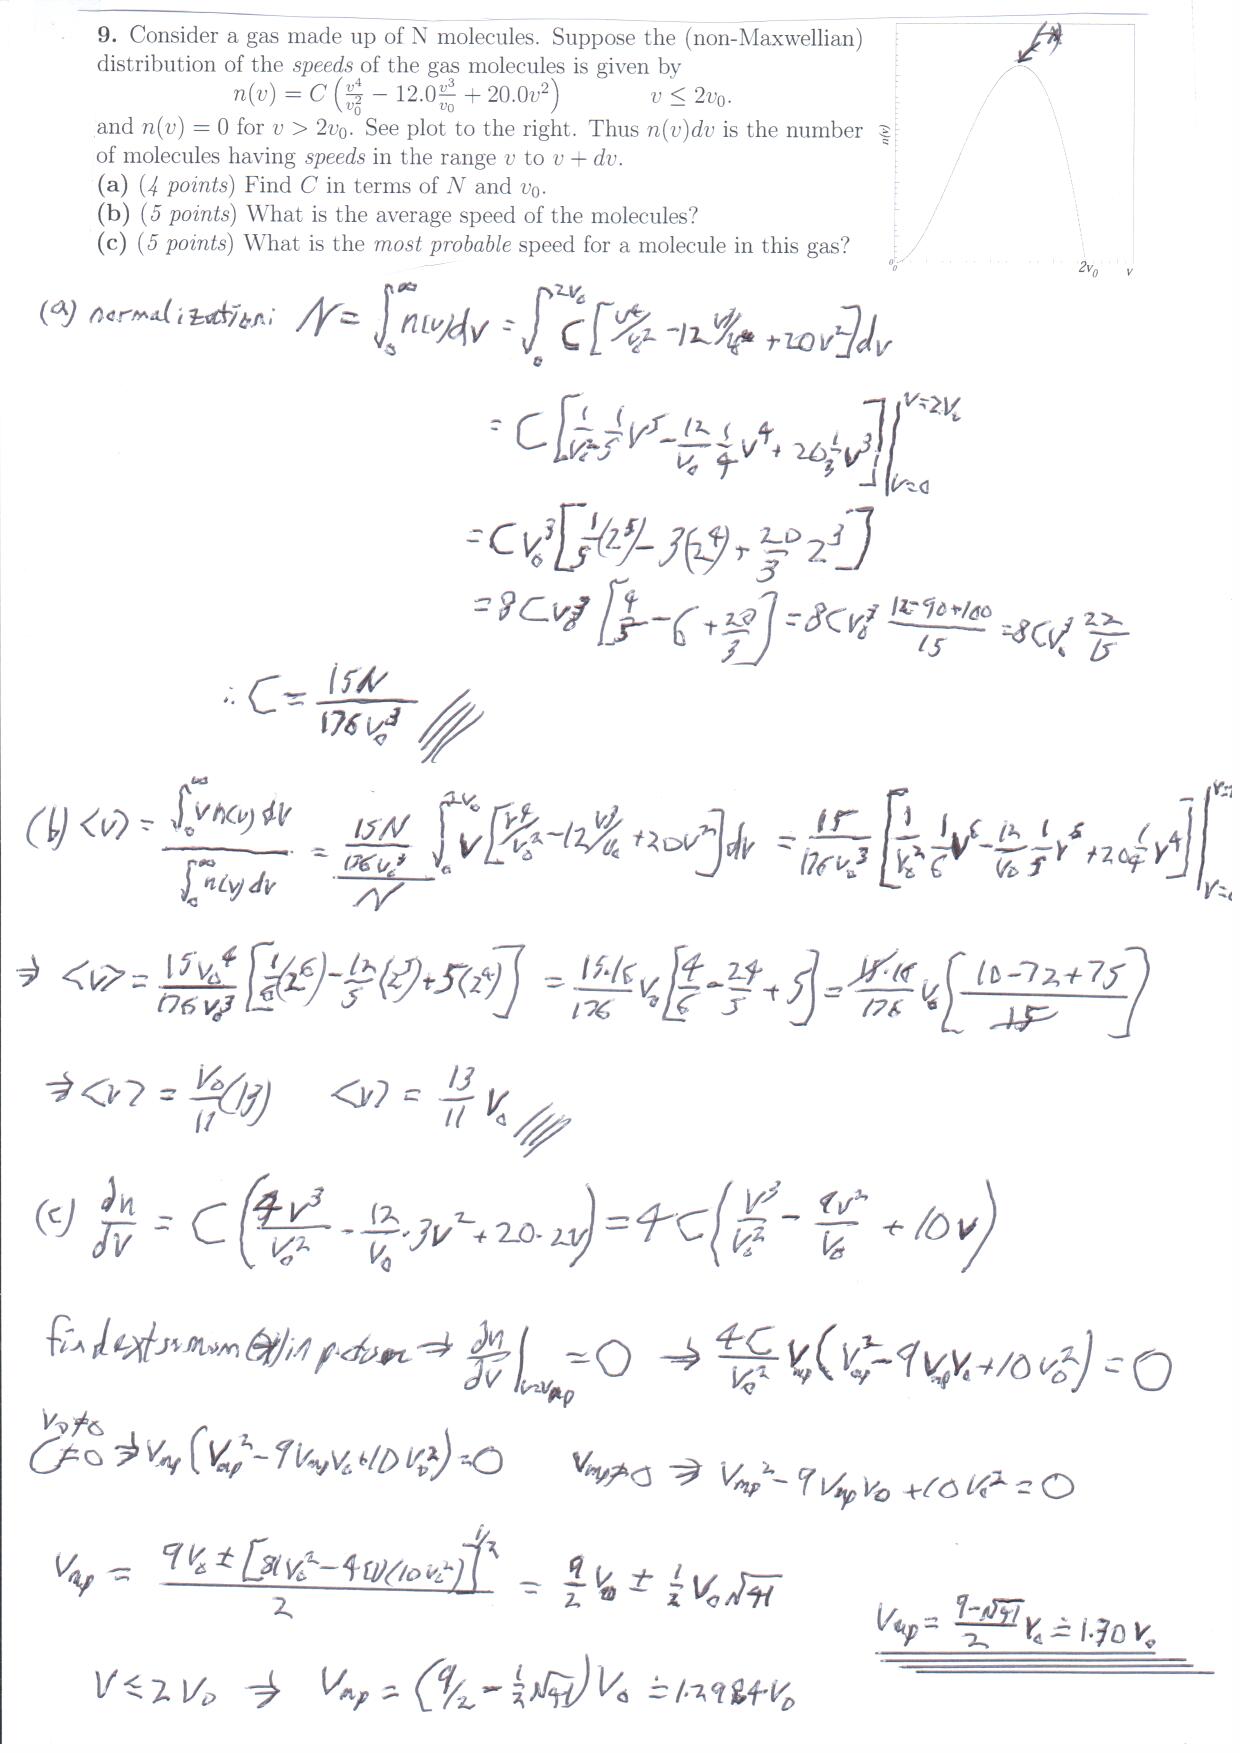 9. Consider a gas made up of N molecules. Suppose the (non-Maxwellian)
distribution of the speeds of the gas molecules is given by
n(v) = C (v⁴/v₀² − 12.0 v³/v₀ + 20.0v²)   v ≤ 2v₀.
and n(v) = 0 for v > 2v₀. See plot to the right. Thus n(v)dv is the number
of molecules having speeds in the range v to v + dv.
(a) (4 points) Find C in terms of N and v₀.
(b) (5 points) What is the average speed of the molecules?
(c) (5 points) What is the most probable speed for a molecule in this gas?
n(v)
0
0 2v₀ v
(a) normalization: N = ∫₀^∞ n(v)dv = ∫₀^{2v₀} C [v⁴/v₀² − 12 v³/v₀ + 20v²]dv
= C [1/v₀² 1/5 v⁵ − 12/v₀ 1/4 v⁴ + 20 1/3 v³]|_{v=0}^{v=2v₀}
= C v₀³ [1/5 (2⁵) − 3(2⁴) + 20/3 2³]
= 8Cv₀³ [4/5 − 6 + 20/3] = 8Cv₀³ (12−90+100)/15 = 8Cv₀³ 22/15
∴ C = 15N/176v₀³
(b) <v> = ∫₀^∞ v n(v) dv / ∫₀^∞ n(v) dv = (15N/176v₀³)/N ∫₀^{2v₀} v [v⁴/v₀² − 12 v³/v₀ + 20v²]dv = 15/176v₀³ [1/v₀² 1/6 v⁶ − 12/v₀ 1/5 v⁵ + 20 1/4 v⁴]|
⇒ <v> = 15v₀⁴/176v₀³ [1/6 (2⁶) − 12/5 (2⁵) + 5(2⁴)] = 15·16/176 v₀ [4/6 − 24/5 + 5] = 15·16/176 v₀ [(10−72+75)/15]
⇒ <v> = v₀/11 (13)   <v> = 13/11 v₀
(c) dn/dv = C (4v³/v₀² − 12/v₀ · 3v² + 20·2v) = 4C (v³/v₀² − 9v²/v₀ + 10v)
find extremum (*) in picture ⇒ dn/dv|_{v=v_mp} = 0 ⇒ 4C/v₀² v_mp (v_mp² − 9v_mp v₀ + 10v₀²) = 0
v₀≠0
C≠0 ⇒ v_mp (v_mp² − 9v_mp v₀ + 10v₀²) = 0   v_mp≠0 ⇒ v_mp² − 9v_mp v₀ + 10v₀² = 0
v_mp = (9v₀ ± [81v₀² − 4(1)(10v₀²)]^{1/2})/2 = 9/2 v₀ ± 1/2 v₀ √41
v_mp = (9−√41)/2 v₀ ≐ 1.30 v₀
v ≤ 2v₀ ⇒ v_mp = (9/2 − 1/2 √41) v₀ ≐ 1.2984 v₀